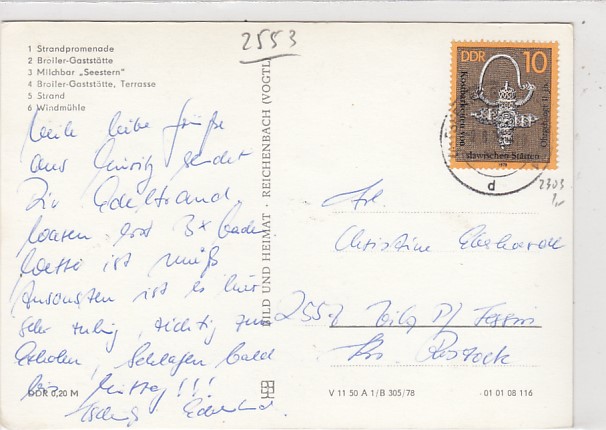 2553
1 Strandpromenade
2 Broiler-Gaststätte
3 Milchbar „Seestern"
4 Broiler-Gaststätte, Terrasse
5 Strand
6 Windmühle
viele liebe Grüße
aus Müritz sendet
Dir Edeltraud.
Waren erst 3x baden
Wetter ist
Ansonsten ist es hier
sehr ruhig, richtig zum
Erholen, schlafen bald
bis Mittag!!!
BILD UND HEIMAT · REICHENBACH (VOGTL
DDR 10
Kostbarkeiten von
slawischen Stätten
Ohrgehänge 11. Jh.
1978
d
2303
Frl.
Christine Eberhardt
2551
Krs. Rostock
DDR 0,20 M
V 11 50 A 1/B 305/78
01 01 08 116